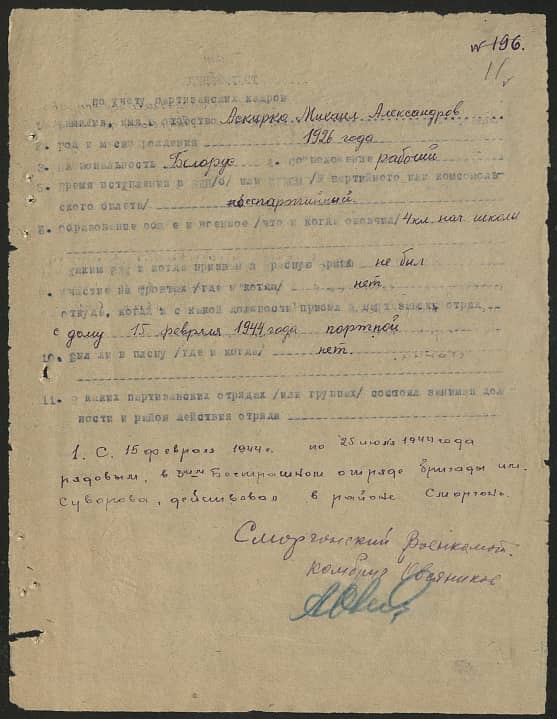 № 196.
11
по учету партизанских кадров
1. Фамилия, имя и отчество Аскирка Михаил Александров
2. Год и место рождения 1926 года
3. Национальность Белорус 4. Соцположение рабочий
5. Время вступления в ВКП/б/ или ВЛКСМ /№ партийного или комсомоль-
ского билета/ беспартийный
6. Образование общее и военное /что и когда окончил/ 4 кл. нач. школы
каким РВК и когда призван в Красную армию не был
участие на фронтах /где и когда/ нет
откуда, когда и с какой должности прибыл в партизанский отряд
с дому 15 февраля 1944 года портной
10. Был ли в плену /где и когда/ нет.
11. В каких партизанских отрядах /или группах/ состоял занимая дол-
ности и район действия отряда
1. С. 15 февраля 1944г. по 25 июля 1944 года
рядовым, в отряде бригады им.
Суворова, действовал в районе Сморгонь.
Сморгонский Военкомат.
Комбриг